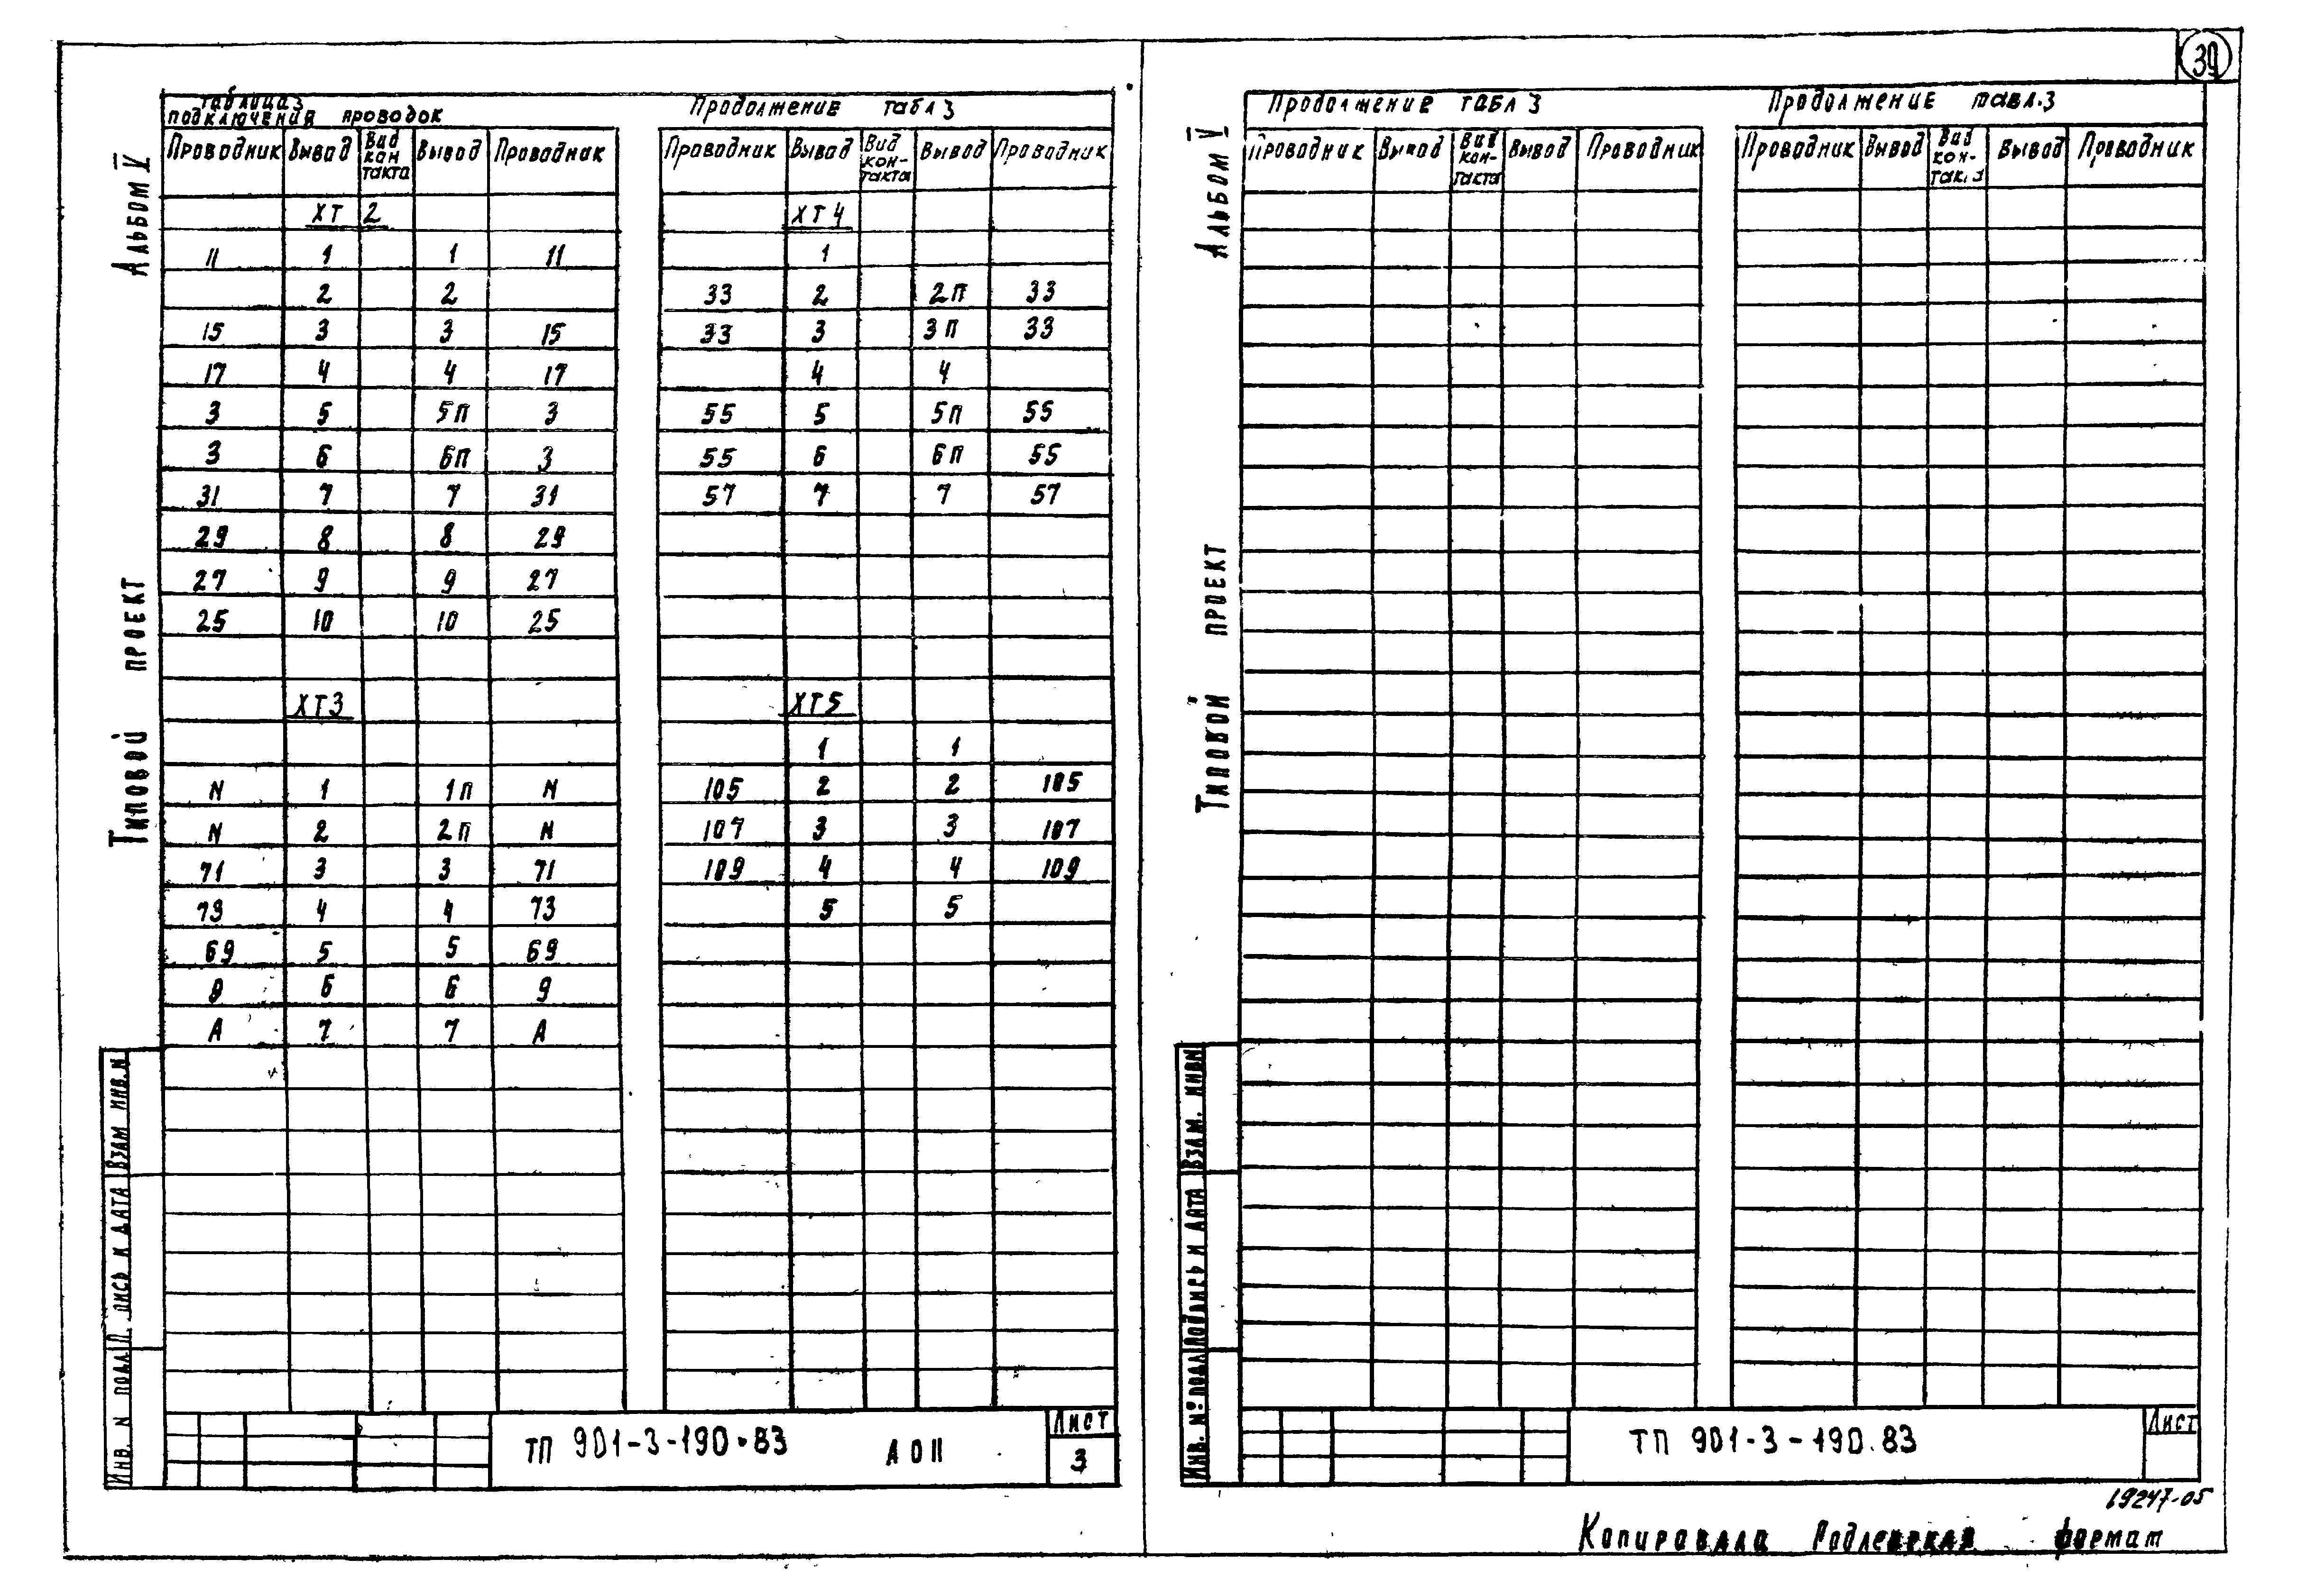 39
Альбом V
Типовой проект
Таблица 3
подключения проводок
Проводник Вывод Вид кон такта Вывод Проводник
ХТ 2
11 1 1 11
2 2
15 3 3 15
17 4 4 17
3 5 5П 3
3 6 6П 3
31 7 7 31
29 8 8 29
27 9 9 27
25 10 10 25
ХТ3
N 1 1П N
N 2 2П N
71 3 3 71
73 4 4 73
69 5 5 69
9 6 6 9
А 7 7 А
Продолжение табл 3
Проводник Вывод Вид кон- такта Вывод Проводник
ХТ4
1
33 2 2П 33
33 3 3П 33
4 4
55 5 5П 55
55 6 6П 55
57 7 7 57
ХТ5
1 1
105 2 2 105
107 3 3 107
109 4 4 109
5 5
Инв. N подл Подпись и дата Взам инв. N
ТП 901-3-190.83 А0П
Лист
3
Альбом V
Типовой проект
Продолжение табл 3
Проводник Вывод Вид кон- такта Вывод Проводник
Продолжение табл.3
Проводник Вывод Вид кон- такта Вывод Проводник
Инв. № подл Подпись и дата Взам. инв N
ТП 901-3-190.83
Лист
19247-05
Копировала формат